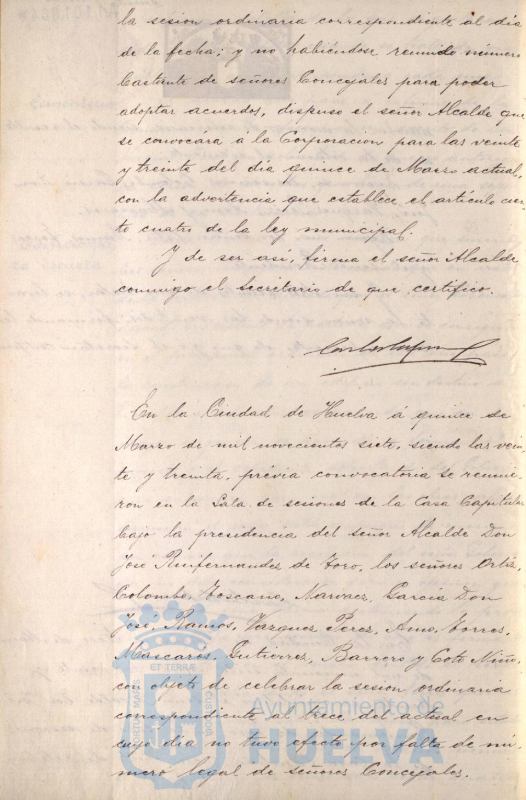 la sesion ordinaria correspondiente al dia
de la fecha; y no habiéndose reunido número
bastante de señores Concejales para poder
adoptar acuerdos, dispuso el señor Alcalde que
se convocára á la Corporacion para las veinte
y treinta del dia quince de Marzo actual,
con la advertencia que establece el artículo cien-
to cuatro de la ley municipal.
Y de ser así, firma el señor Alcalde
conmigo el Secretario de que certifico.
En la Ciudad de Huelva á quince de
Marzo de mil novecientos siete, siendo las vein-
te y treinta, prévia convocatoria se reunie-
ron en la Sala de sesiones de la Casa Capitular
bajo la presidencia del señor Alcalde Don
José Ruifernandez de Toro, los señores Ortiz,
Colombo, Toscano, Narvaez, Garcia Don
José, Ramos, Vazquez Perez, Amo, Torres,
Mascarós, Gutierrez, Barrero y Coto Niño,
con objeto de celebrar la sesion ordinaria
correspondiente al trece del actual en
cuyo dia no tuvo efecto por falta de nú-
mero legal de señores Concejales.
PORTUS MARIS
ET TERRÆ
Ayuntamiento de
HUELVA